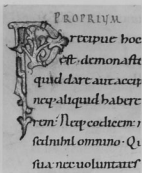 PROPRIUM
Precipue hoc
est. demonast
quid dare aut accip
neq; aliquid habere
rem; Neq; codicem;
sed nihil omnino. Q
sua nec voluntates